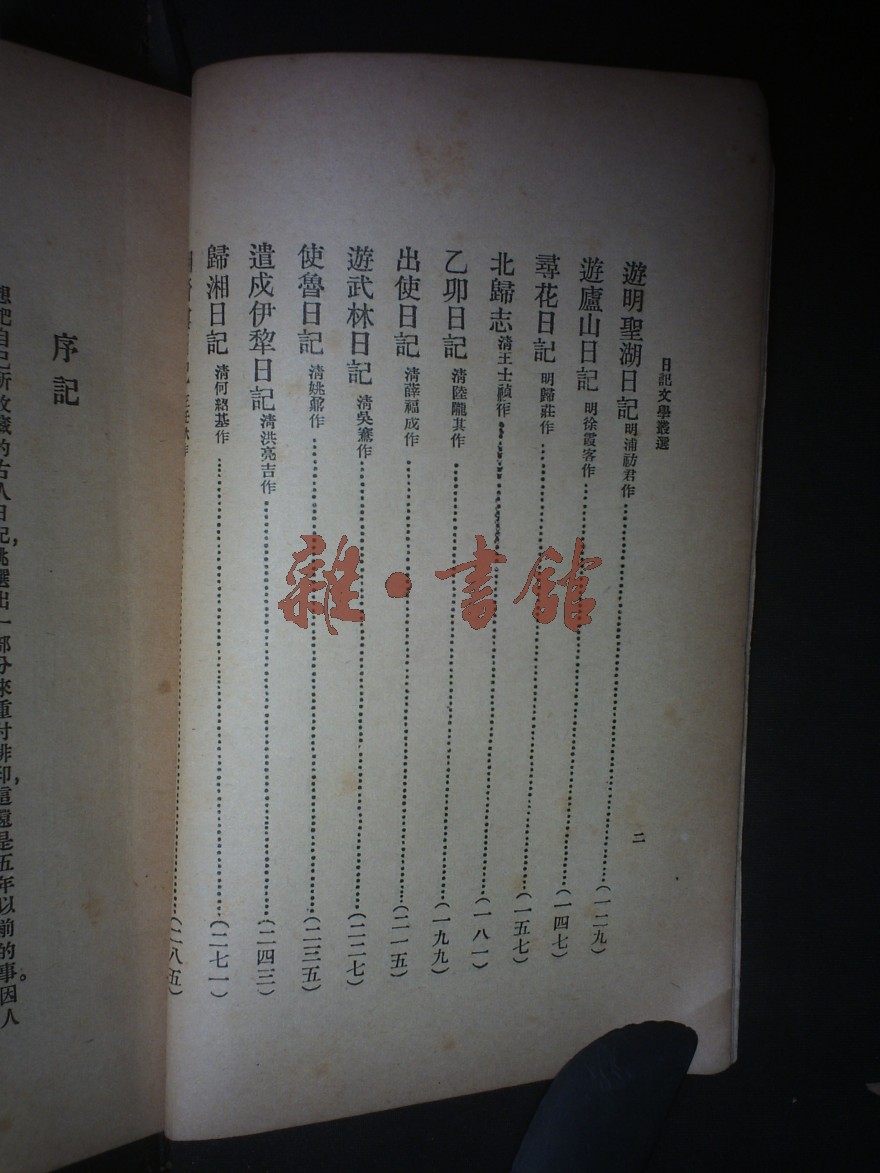 日記文學叢選
二
遊明聖湖日記 明浦祊君作……(一二九)
遊廬山日記 明徐霞客作……(一四七)
尋花日記 明歸莊作……(一五七)
北歸志 清王士禎作……(一八一)
乙卯日記 清陸隴其作……(一九九)
出使日記 清薛福成作……(二一五)
遊武林日記 清吳騫作……(二二七)
使魯日記 清姚鼐作……(二三五)
遣戍伊犂日記 清洪亮吉作……(二四三)
歸湘日記 清何紹基作……(二七一)
……(二八五)
序記
想把自己所收藏的古人日記,挑選出一部分來重付排印,這還是五年以前的事。因人
雜·書館